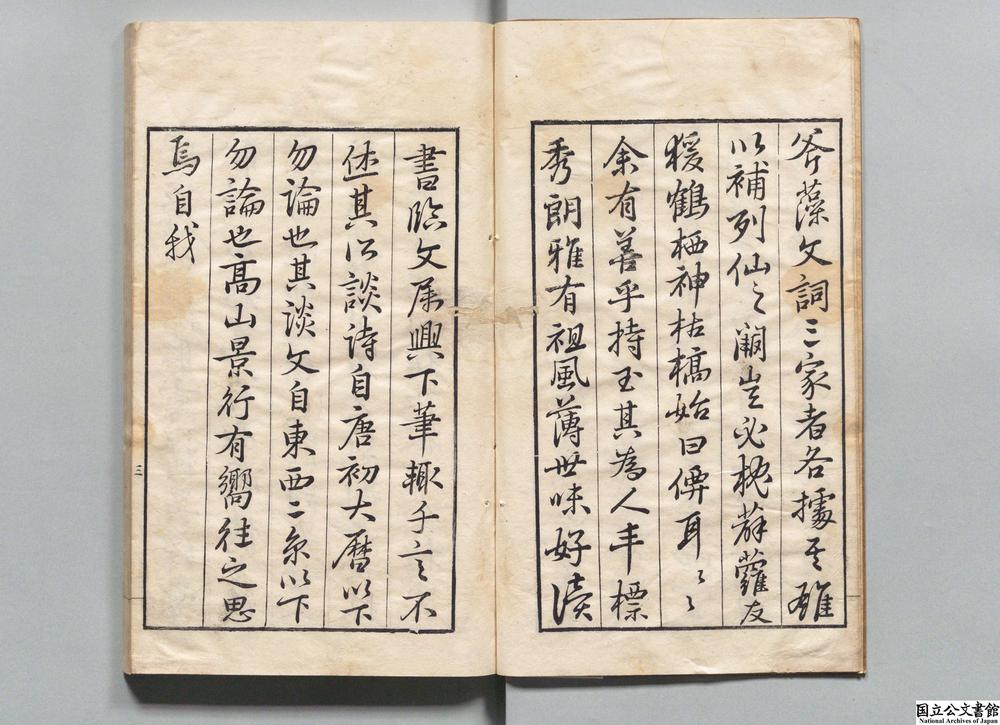 斧藻文詞三家者各據其雄
以補列仙之漏豈必枕薜蘿友
猨鶴栖神枯槁始曰儒耳〻〻
余有善乎持玉其為人丰標
秀朗雅有祖風薄世味好讀
書臨文屬興下筆輒千言不
休其論談詩自唐初大曆以下
勿論也其談文自東西二京以下
勿論也高山景行有嚮往之思
焉自我
三
国立公文書館
National Archives of Japan